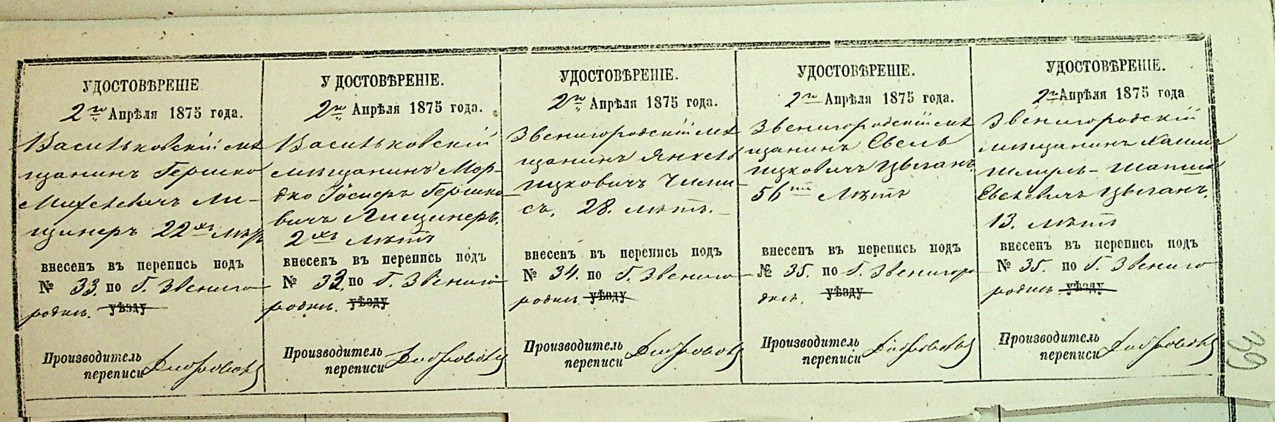 УДОСТОВѢРЕНІЕ
2го Апрѣля 1875 года.
Васильковскій мѣ
щанинъ Гершко
Михелевичъ Ли-
щинеръ 22хъ лѣтъ
внесенъ въ перепись подъ
№ 33. по г. Звениго-
родкѣ. уѣзду
Производитель
переписи
УДОСТОВѢРЕНІЕ.
2го Апрѣля 1875 года.
Васильковскій
мѣщанинъ Мор-
дко Іосифъ Гершко-
вичъ Лищинеръ,
2хъ лѣтъ
внесенъ въ перепись подъ
№ 33. по г. Звениго
родкѣ. уѣзду
Производитель
переписи
УДОСТОВѢРЕНІЕ.
2го Апрѣля 1875 года.
Звенигородскій мѣ
щанинъ Янкель
Ицковичъ
28. лѣтъ.
внесенъ въ перепись подъ
№ 34. по г. Звениго-
родкѣ. уѣзду
Производитель
переписи
УДОСТОВѢРЕНІЕ.
2го Апрѣля 1875 года.
Звенигородскій мѣ
щанинъ Евель
Ицковичъ Цыганъ
56ти лѣтъ
внесенъ въ перепись подъ
№ 35. по г. Звенигоро
дкѣ. уѣзду
Производитель
переписи
УДОСТОВѢРЕНІЕ.
2го Апрѣля 1875 года
Звенигородскій
мѣщанинъ Хаимъ
Шмуль-
Евелевичъ Цыганъ,
13. лѣтъ
внесенъ въ перепись подъ
№ 35. по г. Звениго
родкѣ уѣзду
Производитель
переписи